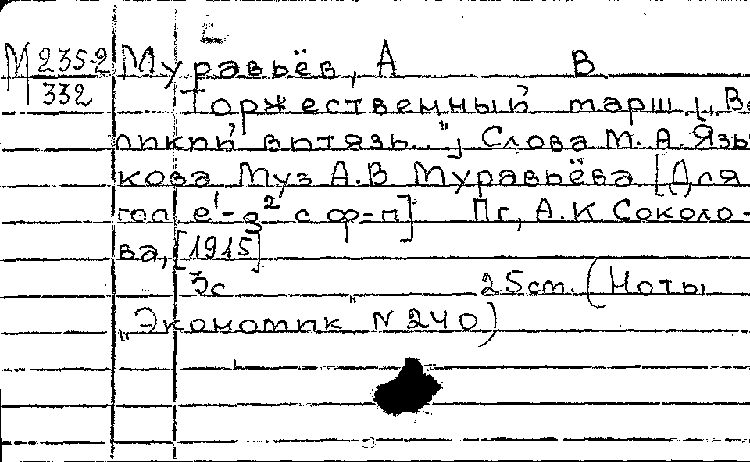 М 235-2 Муравьёв, А В
332 Торжественный марш „Ве-
ликий витязь.."; Слова М. А. Язы-
кова Муз А. В Муравьёва [Для
гол e¹-g² с ф-п] Пг, А. К Соколо-
ва, [1915]
3с 25cm. (Ноты
„Экономик N 240)